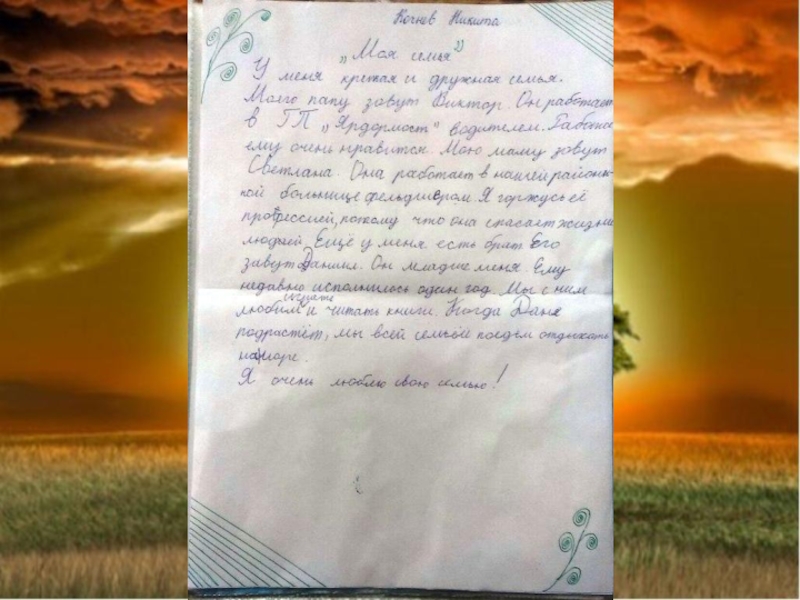 Кочнев Никита
„Моя семья"
У меня крепкая и дружная семья.
Моего папу зовут Виктор. Он работает
в ГП „Ярдормост" водителем. Работа
ему очень нравится. Мою маму зовут
Светлана. Она работает в нашей район-
ной больнице фельдшером. Я горжусь её
профессией, потому что она спасает жизни
людей. Ещё у меня есть брат. Его
зовут Даниил. Он младше меня. Ему
недавно исполнилось один год. Мы с ним
любим играть и читать книги. Когда Даня
подрастёт, мы всей семьёй поедем отдыхать
на море.
Я очень люблю свою семью!